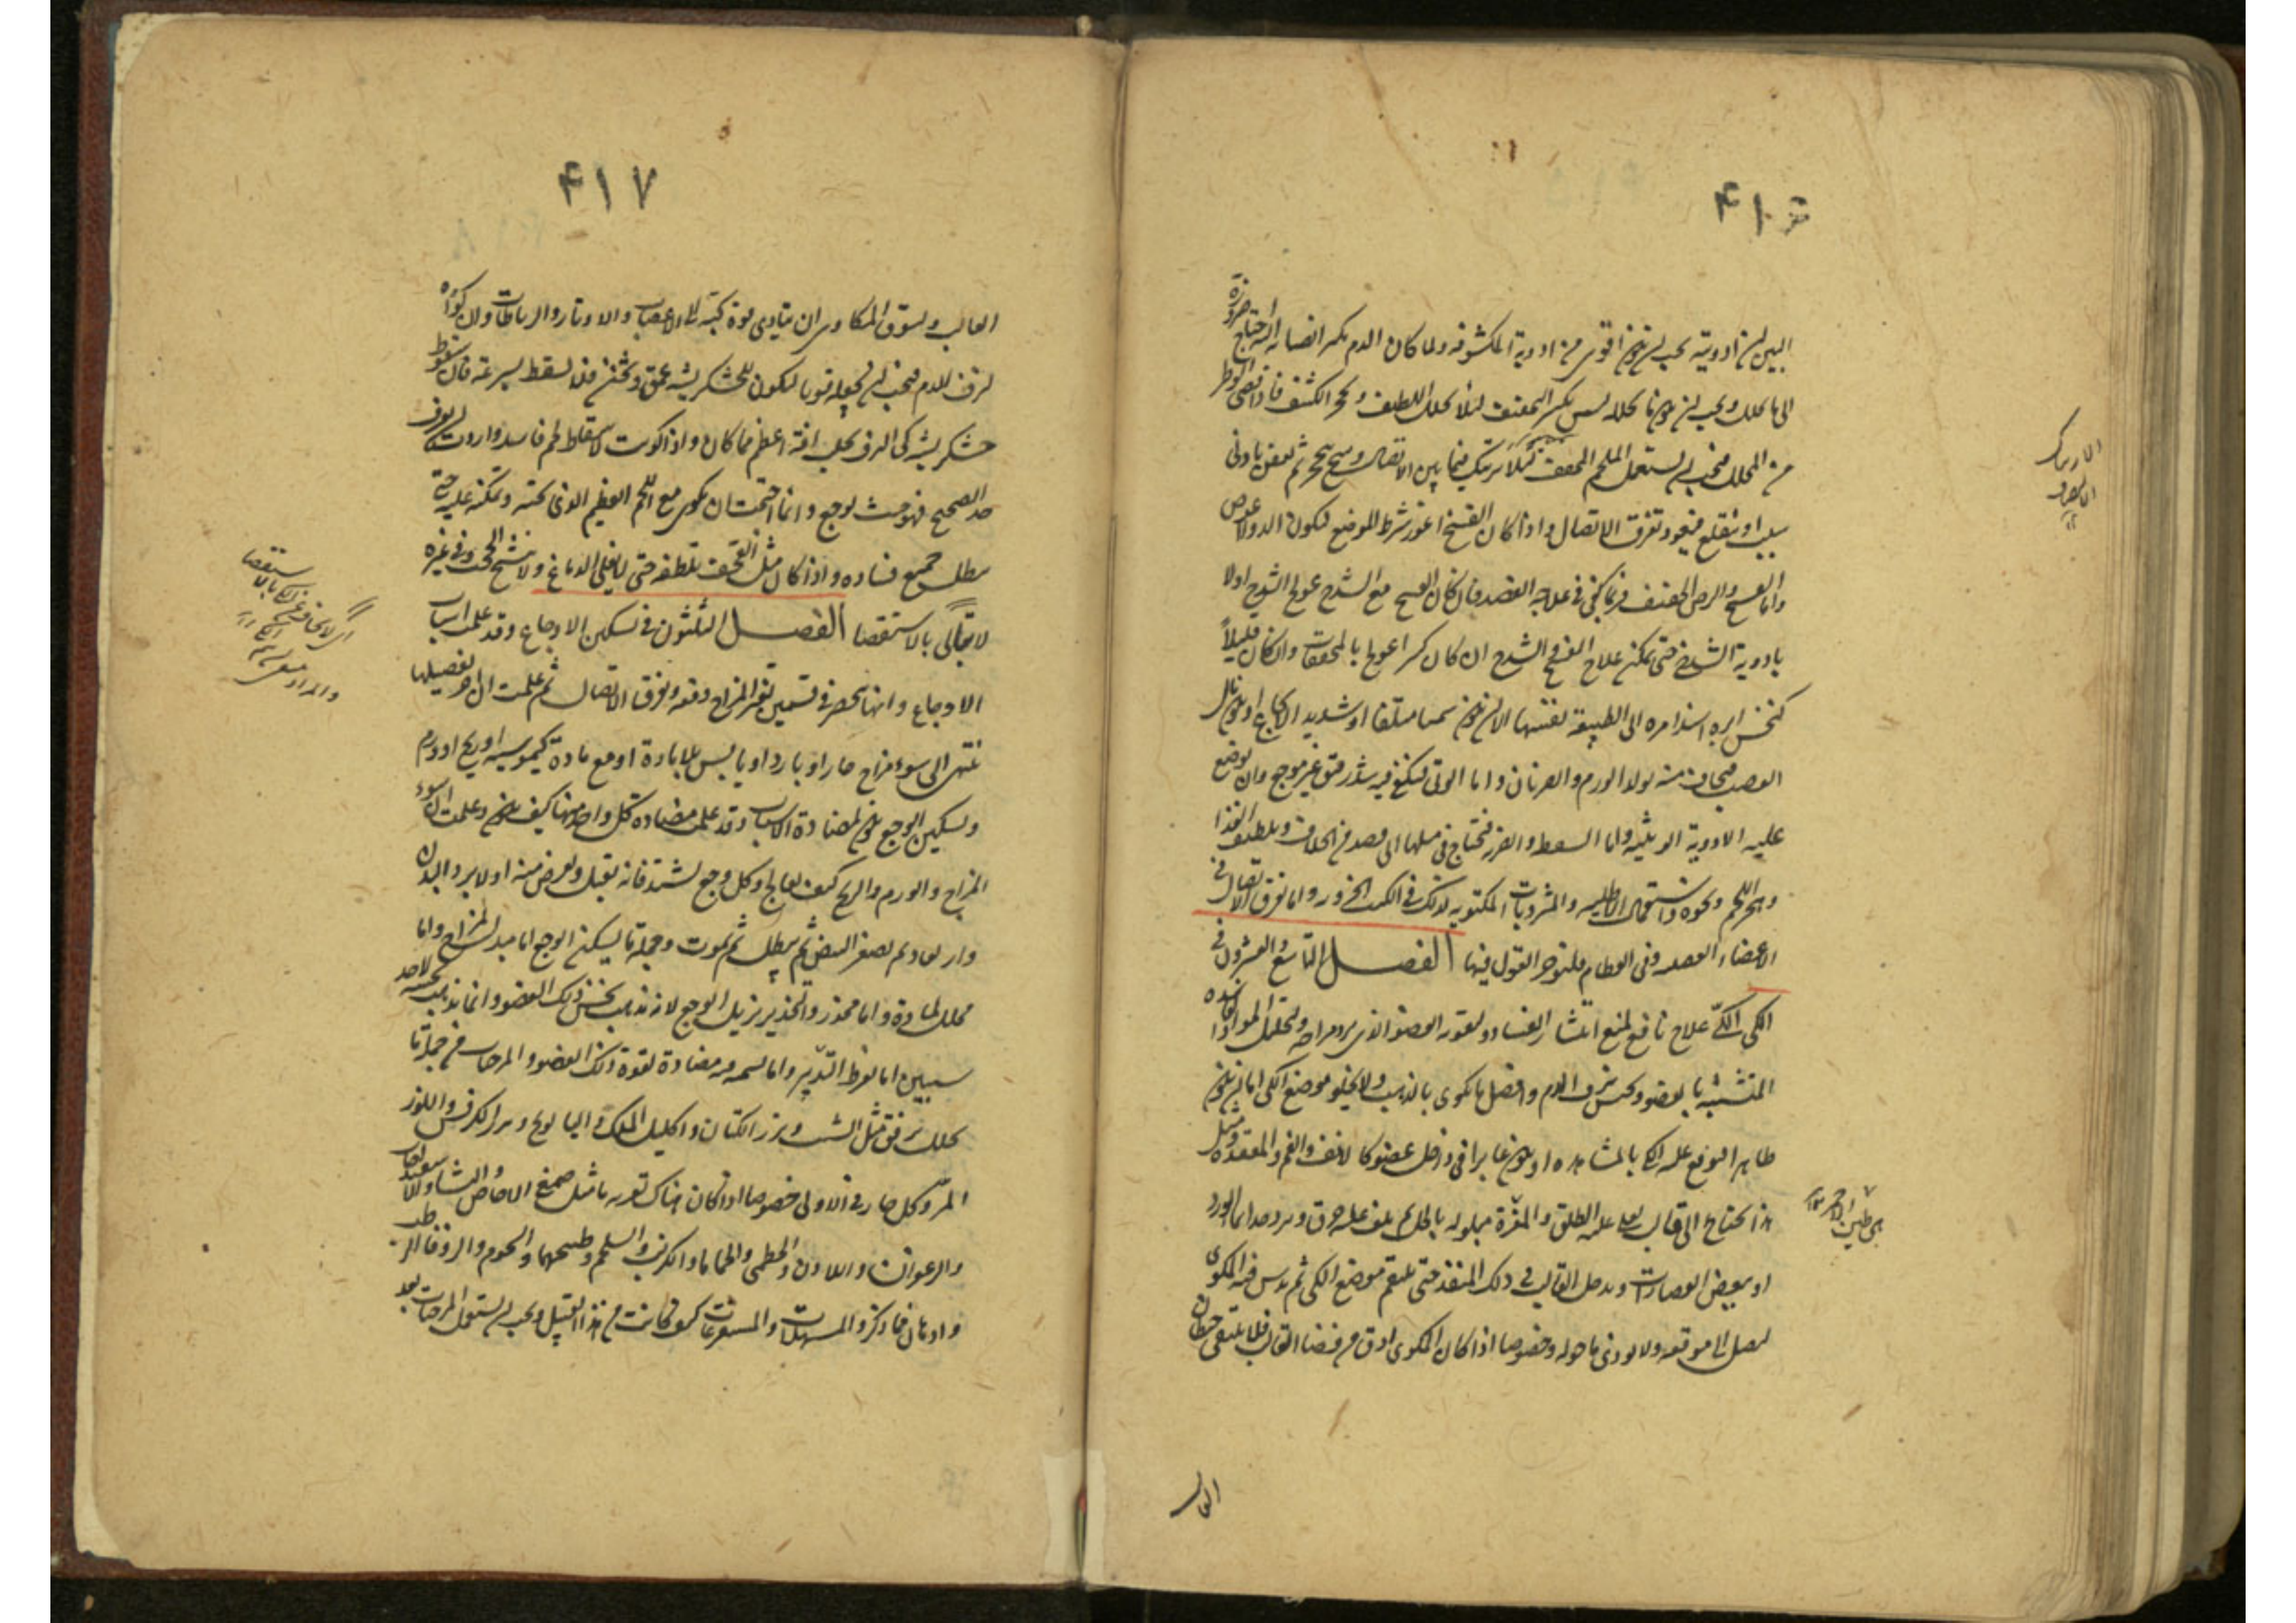 ۴۱۶
البين لان ادويته يجب ان يكون اقوى من ادوية المكشوفة ولما كان الدم يكثر انصبابه اليه احتاج ضرورة
الى ما يحلل ويجب ان يكون ما يحلله ليس بكثير التجفيف لئلا يحلل اللطيف ويحجر الكثيف فاذا قضى الوطر
من المحلل فيجب ان يستعمل الملحم المجفف لئلا يرتبك فيما بين الاتصال وسخ يتحجر ثم يعفن بادنى
سبب او ينقلع فيعود تفرق الاتصال واذا كان الفسخ اغور شرط الموضع ليكون الدواء اغوص
واما الفسخ والرض الخفيف فربما كفى في علاجه الفصد فان كان الفسخ مع الشدخ عولج الشدخ اولا
بادوية الشدخ حتى يمكن علاج الفسخ والشدخ ان كان كثيرا عولج بالمجففات وان كان قليلاً
كنخس ابرة اسند امره الى الطبيعة نفسها الا ان يكون سميا متلفا او شديد الايجاع او يكون نال
العصب فيخاف منه تولد الورم والضربان واما الوثي فيكفي فيه شد رقيق غير موجع وان توضع
عليه الادوية الوثيية واما السقطة والضربة فتحتاج في مثلها الى فصد من الخلاف وتلطيف الغذا
وهجر اللحم ونحوه واستعمال الاطلية والمشروبات المكتوبة لذلك في الكتب الجزوية واما تفرق الاتصال في
الاعضاء العصبية وفي العظام فلنؤخر القول فيها الفصل التاسع والعشرون في
الكي الكيّ علاج نافع لمنع انتشار الفساد ولتقوية العضو الذي يرد مزاجه ولتحليل المواد الفاسدة
المتشبثة بالعضو ولحبس نزف الدم وافضل ما يكوى به الذهب ولا يخلو موضع الكي اما ان يكون
ظاهرا ويوقع عليه الكي بالمشاهدة او يكون غايرا في داخل عضو كالانف والفم والمقعدة ومثل
هذا يحتاج الى قالب يطلى عليه الطلق والمغرة مبلولة بالخل ثم يلف عليه خرق ويبرد جدا بماء الورد
او ببعض العصارات ويدخل القالب في ذلك المنفذ حتى يلتقم موضع الكي ثم يدس فيه المكوى
ليصل الى موقعه ولا يوذى ما حوله وخصوصا اذا كان المكوى ادق من فضا القالب فلا يلتقى حيطان
القالب
۴۱۷
القالب وليتوق المكاوى ان يتادى قوة كيه الى الاعصاب والاوتار والرباطات وان كان كيه
لنزف الدم فيجب ان يجعله قويا ليكون للخشكريشة عمق وثخن فلا يسقط بسرعة فان سقوط
خشكريشة كى النزف يجلب افة اعظم مما كان واذا كويت لاسقاط لحم فاسد واردت ان تعرف
حد الصحيح فهو حيث يوجع وانما احتجت ان تكوى مع اللحم العظم الذى تحته وتمكنه عليه حتى
يبطل جميع فساده واذا كان مثل القحف تلطفه حتى لا يغلى الدماغ ولا تتشنج الحجب وفي غيره
لا تبالي بالاستقصا الفصل الثلثون في تسكين الاوجاع وقد علمت اسباب
الاوجاع وانها تنحصر في قسمين تغير المزاج دفعة وتفرق الاتصال ثم علمت ان اخر تفصيلها
ينتهى الى سوء مزاج حار او بارد او يابس بلا مادة او مع مادة كيموسية او ريح او ورم
وتسكين الوجع يكون لمضادة الاسباب وقد علمت مضادة كل واحد منها كيف يكون وعلمت ان سوء
المزاج والورم والريح كيف يعالج وكل وجع يشتد فانه يقتل ويعرض منه اولا برد البدن
وارتعاد ثم يصغر النبض ثم يبطل ثم يموت وجملة ما يسكن الوجع اما مبدل المزاج واما
محلل لمادة واما مخدر والتخدير يزيل الوجع لانه يذهب بحس ذلك العضو وانما يذهب بحسه لاحد
سببين اما بفرط التبريد واما بسمية فيه مضادة لقوة ذلك العضو والمرخيات من جملة ما
يحلل برفق مثل الشبت وبزر الكتان واكليل الملك والبابونج وبزر الكرفس واللوز
المرّ وكل حار في الاولى خصوصا اذا كان هناك تغرية ما مثل صمغ الاجاص والنشا والاسفيداج
والزعفران واللادن والخطمى والحماما والكرنب والسلجم وطبيخها والشحوم والزوفا الرطب
وادهان مما ذكر والمسهلات والمستفرغات كيف كانت من هذا القبيل ويجب ان يستعمل المرخيات بعد